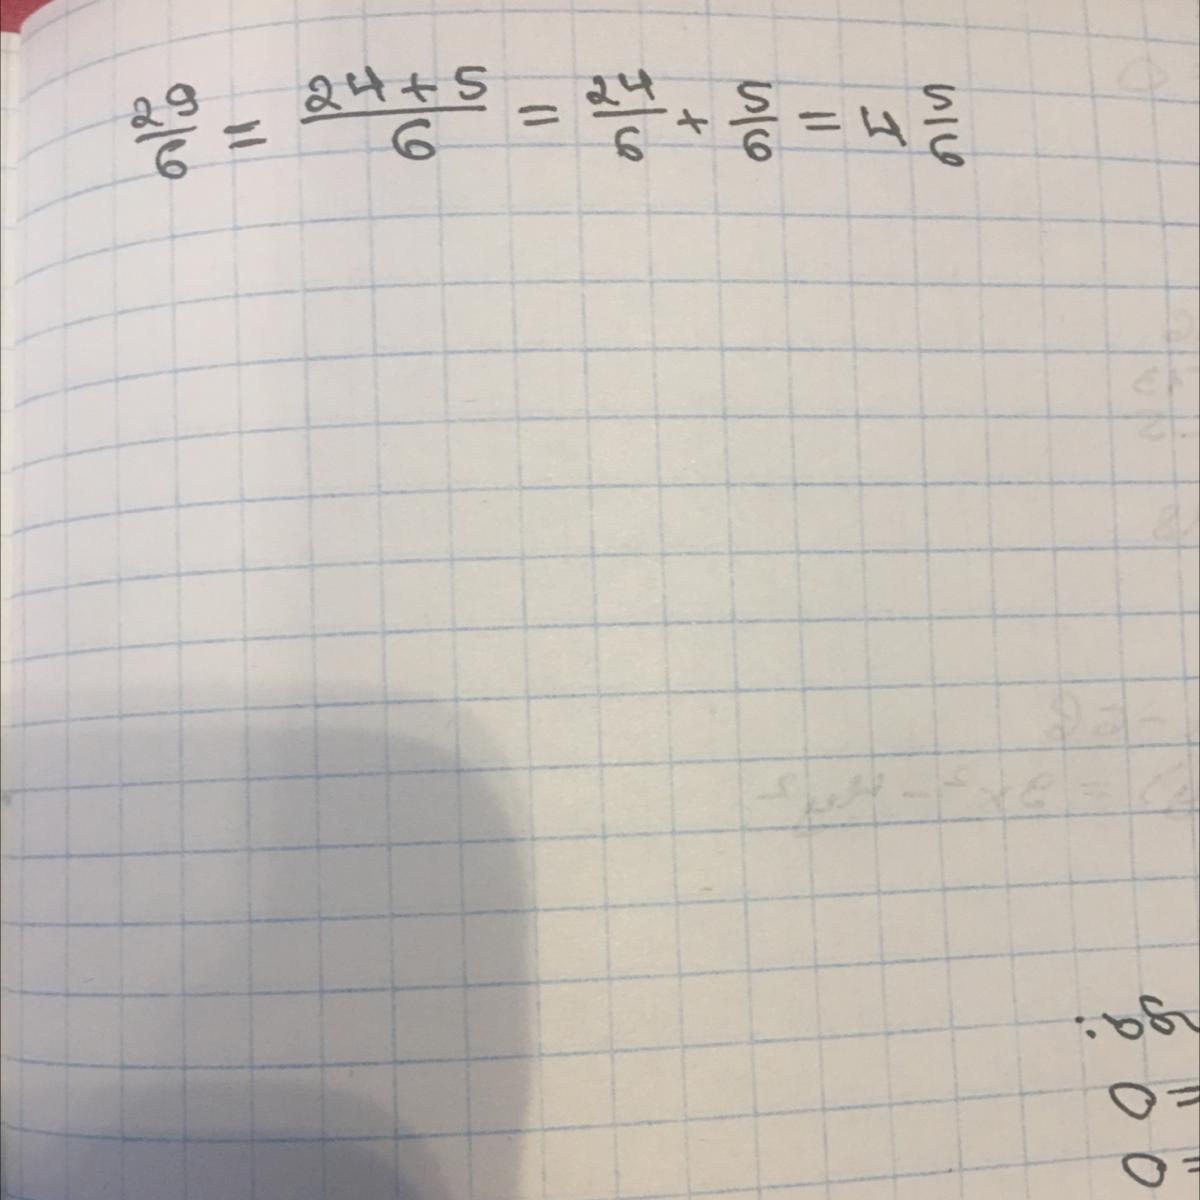 29/6 = (24+5)/6 = 24/6 + 5/6 = 4 5/6
= 0
= 0